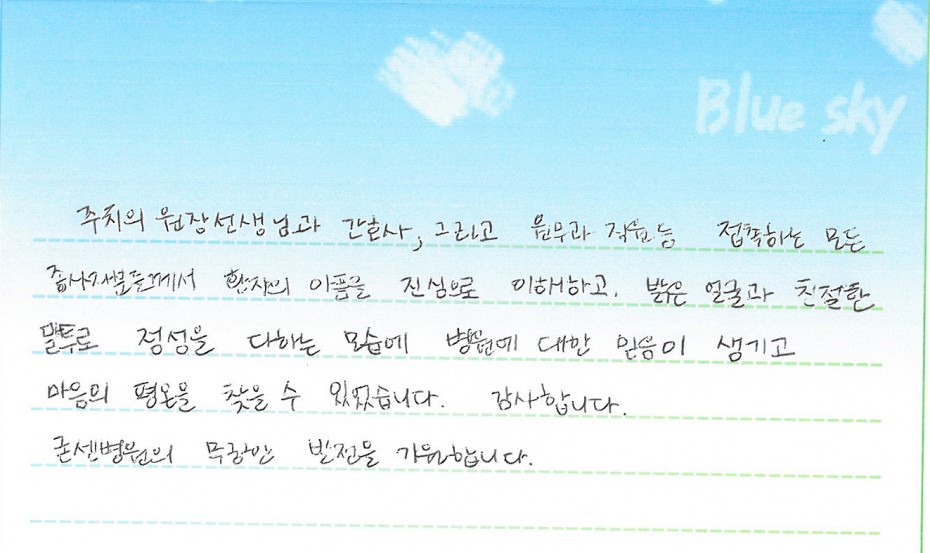 Blue sky
주치의 원장선생님과 간호사, 그리고 원무과 직원등 접촉하는 모든
종사자분들께서 환자의 아픔을 진심으로 이해하고, 밝은 얼굴과 친절한
말투로 정성을 다하는 모습에 병원에 대한 믿음이 생기고
마음의 평온을 찾을 수 있었습니다. 감사합니다.
굿센병원의 무궁한 발전을 기원합니다.